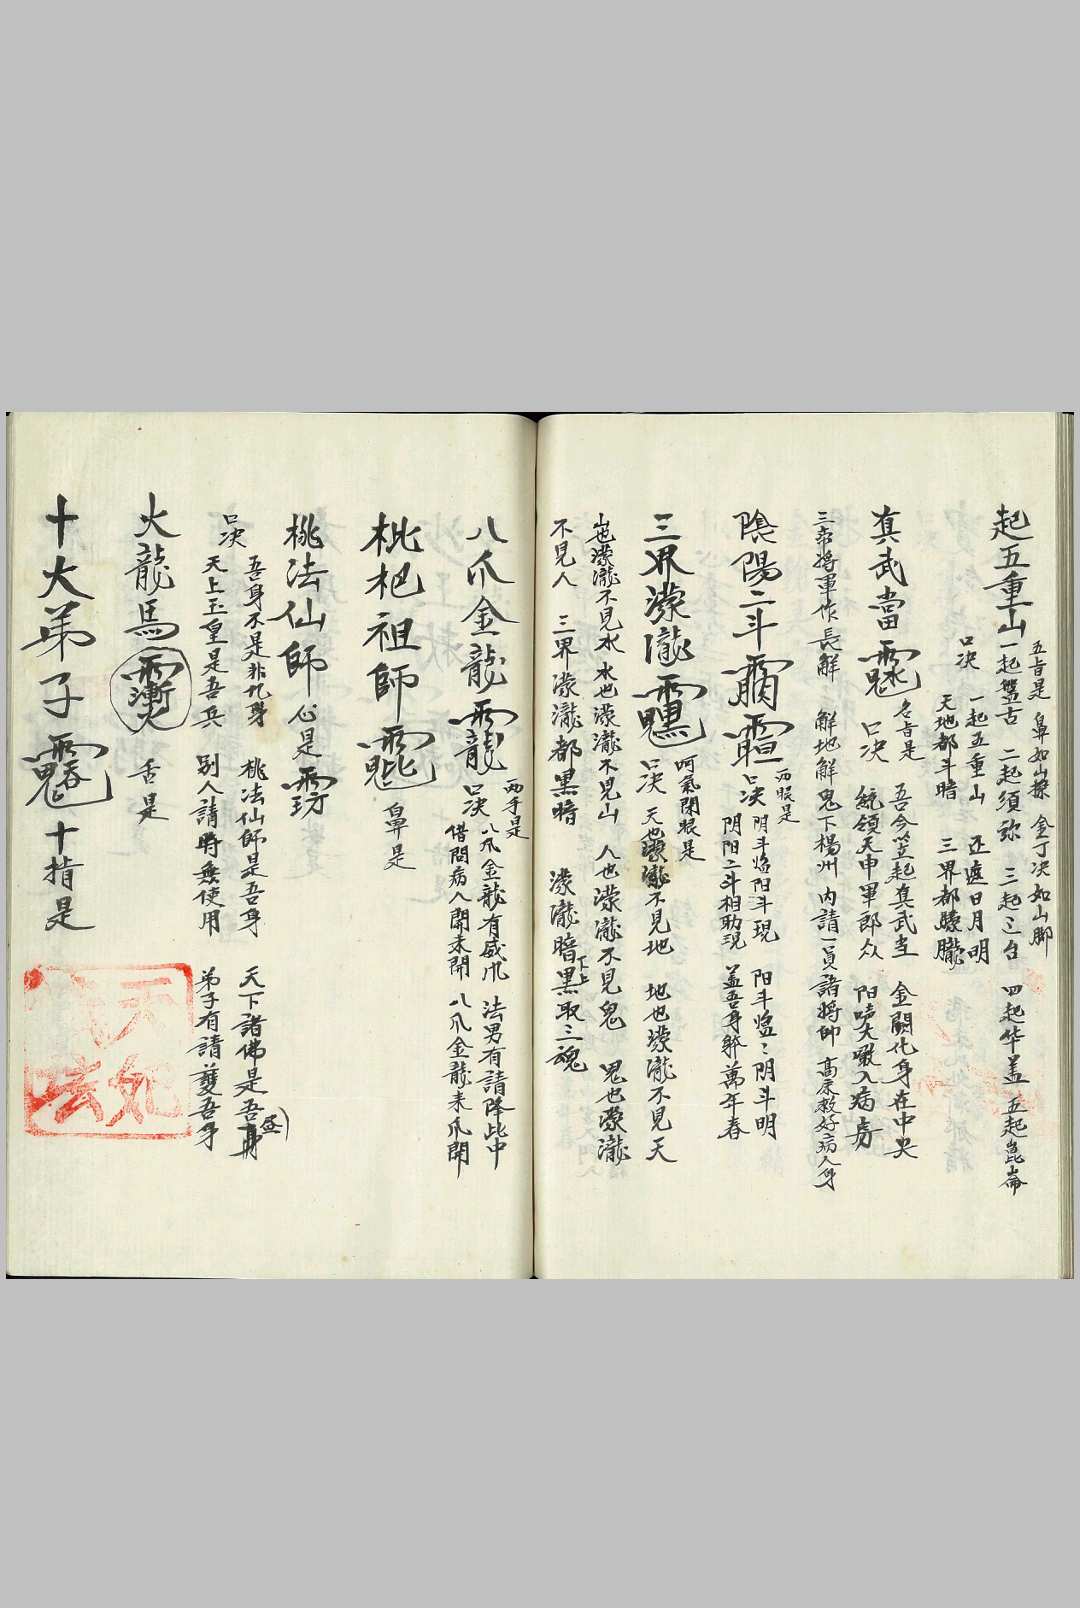 五旨是 鼻如山樑 金丁决如山脚
起五重山 一起盤古 二起須弥 三起三台 四起华盖 五起崑崙
口决 一起五重山 正遮日月明
天地都斗暗 三界都朦朧
真武當
名旨是
口决 吾今竖起真武主 金闕化身在中央
統領天申軍郎众 阳声大噉入病房
三帝将軍作長解 解地解鬼下楊州 内請一員諸将帥 高床救好病人身
陰陽二斗
两眼是
口决 阴斗焰阳斗现 阳斗焰焰阴斗明
阴阳二斗相助现 盖吾身躬萬年春
三界濛瀧
呵氣閉眼是
口决 天也濛瀧不見地 地也濛瀧不見天
也濛瀧不見水 水也濛瀧不見山 人也濛瀧不見鬼 鬼也濛瀧
不見人 三界濛瀧都黑暗 濛瀧暗黑取三魂
上下
八爪金龍
两手是
口决 八爪金龍有威爪 法男有請降此中
借問病人開未開 八爪金龍来爪開
枇杷祖師
鼻是
桃法仙師 心是
口决 吾身不是非凡身 桃法仙師是吾身 天下諸佛是吾身
天上玉皇是吾兵 别人請時無使用 弟子有請蓋吾身
火龍馬 舌是
十大弟子 十指是